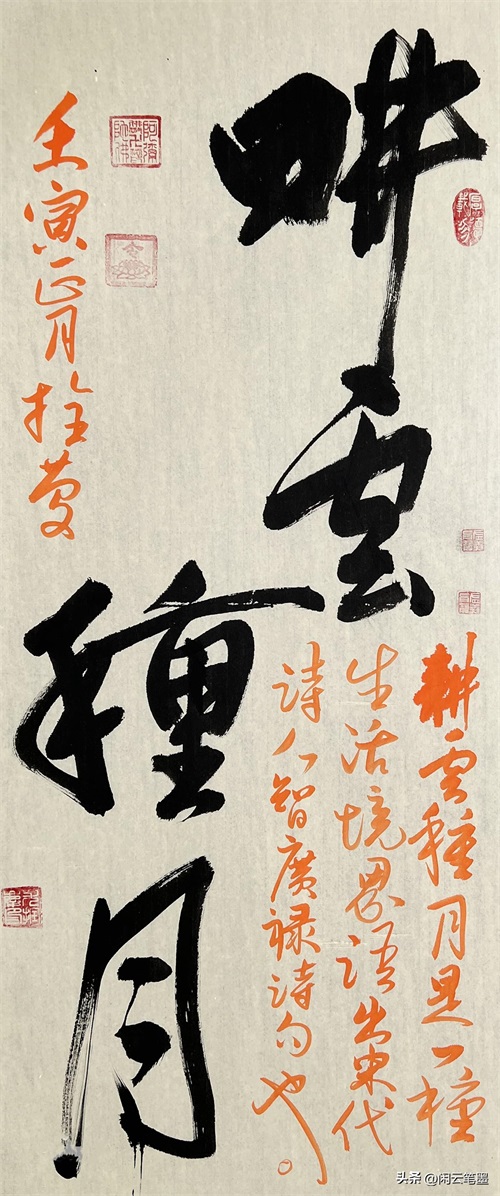 畊雲
種月
耕雲種月是一種
生活境界語出宋代
詩人智廣禄詩句也。
壬寅正月
头条 @闲云笔墨